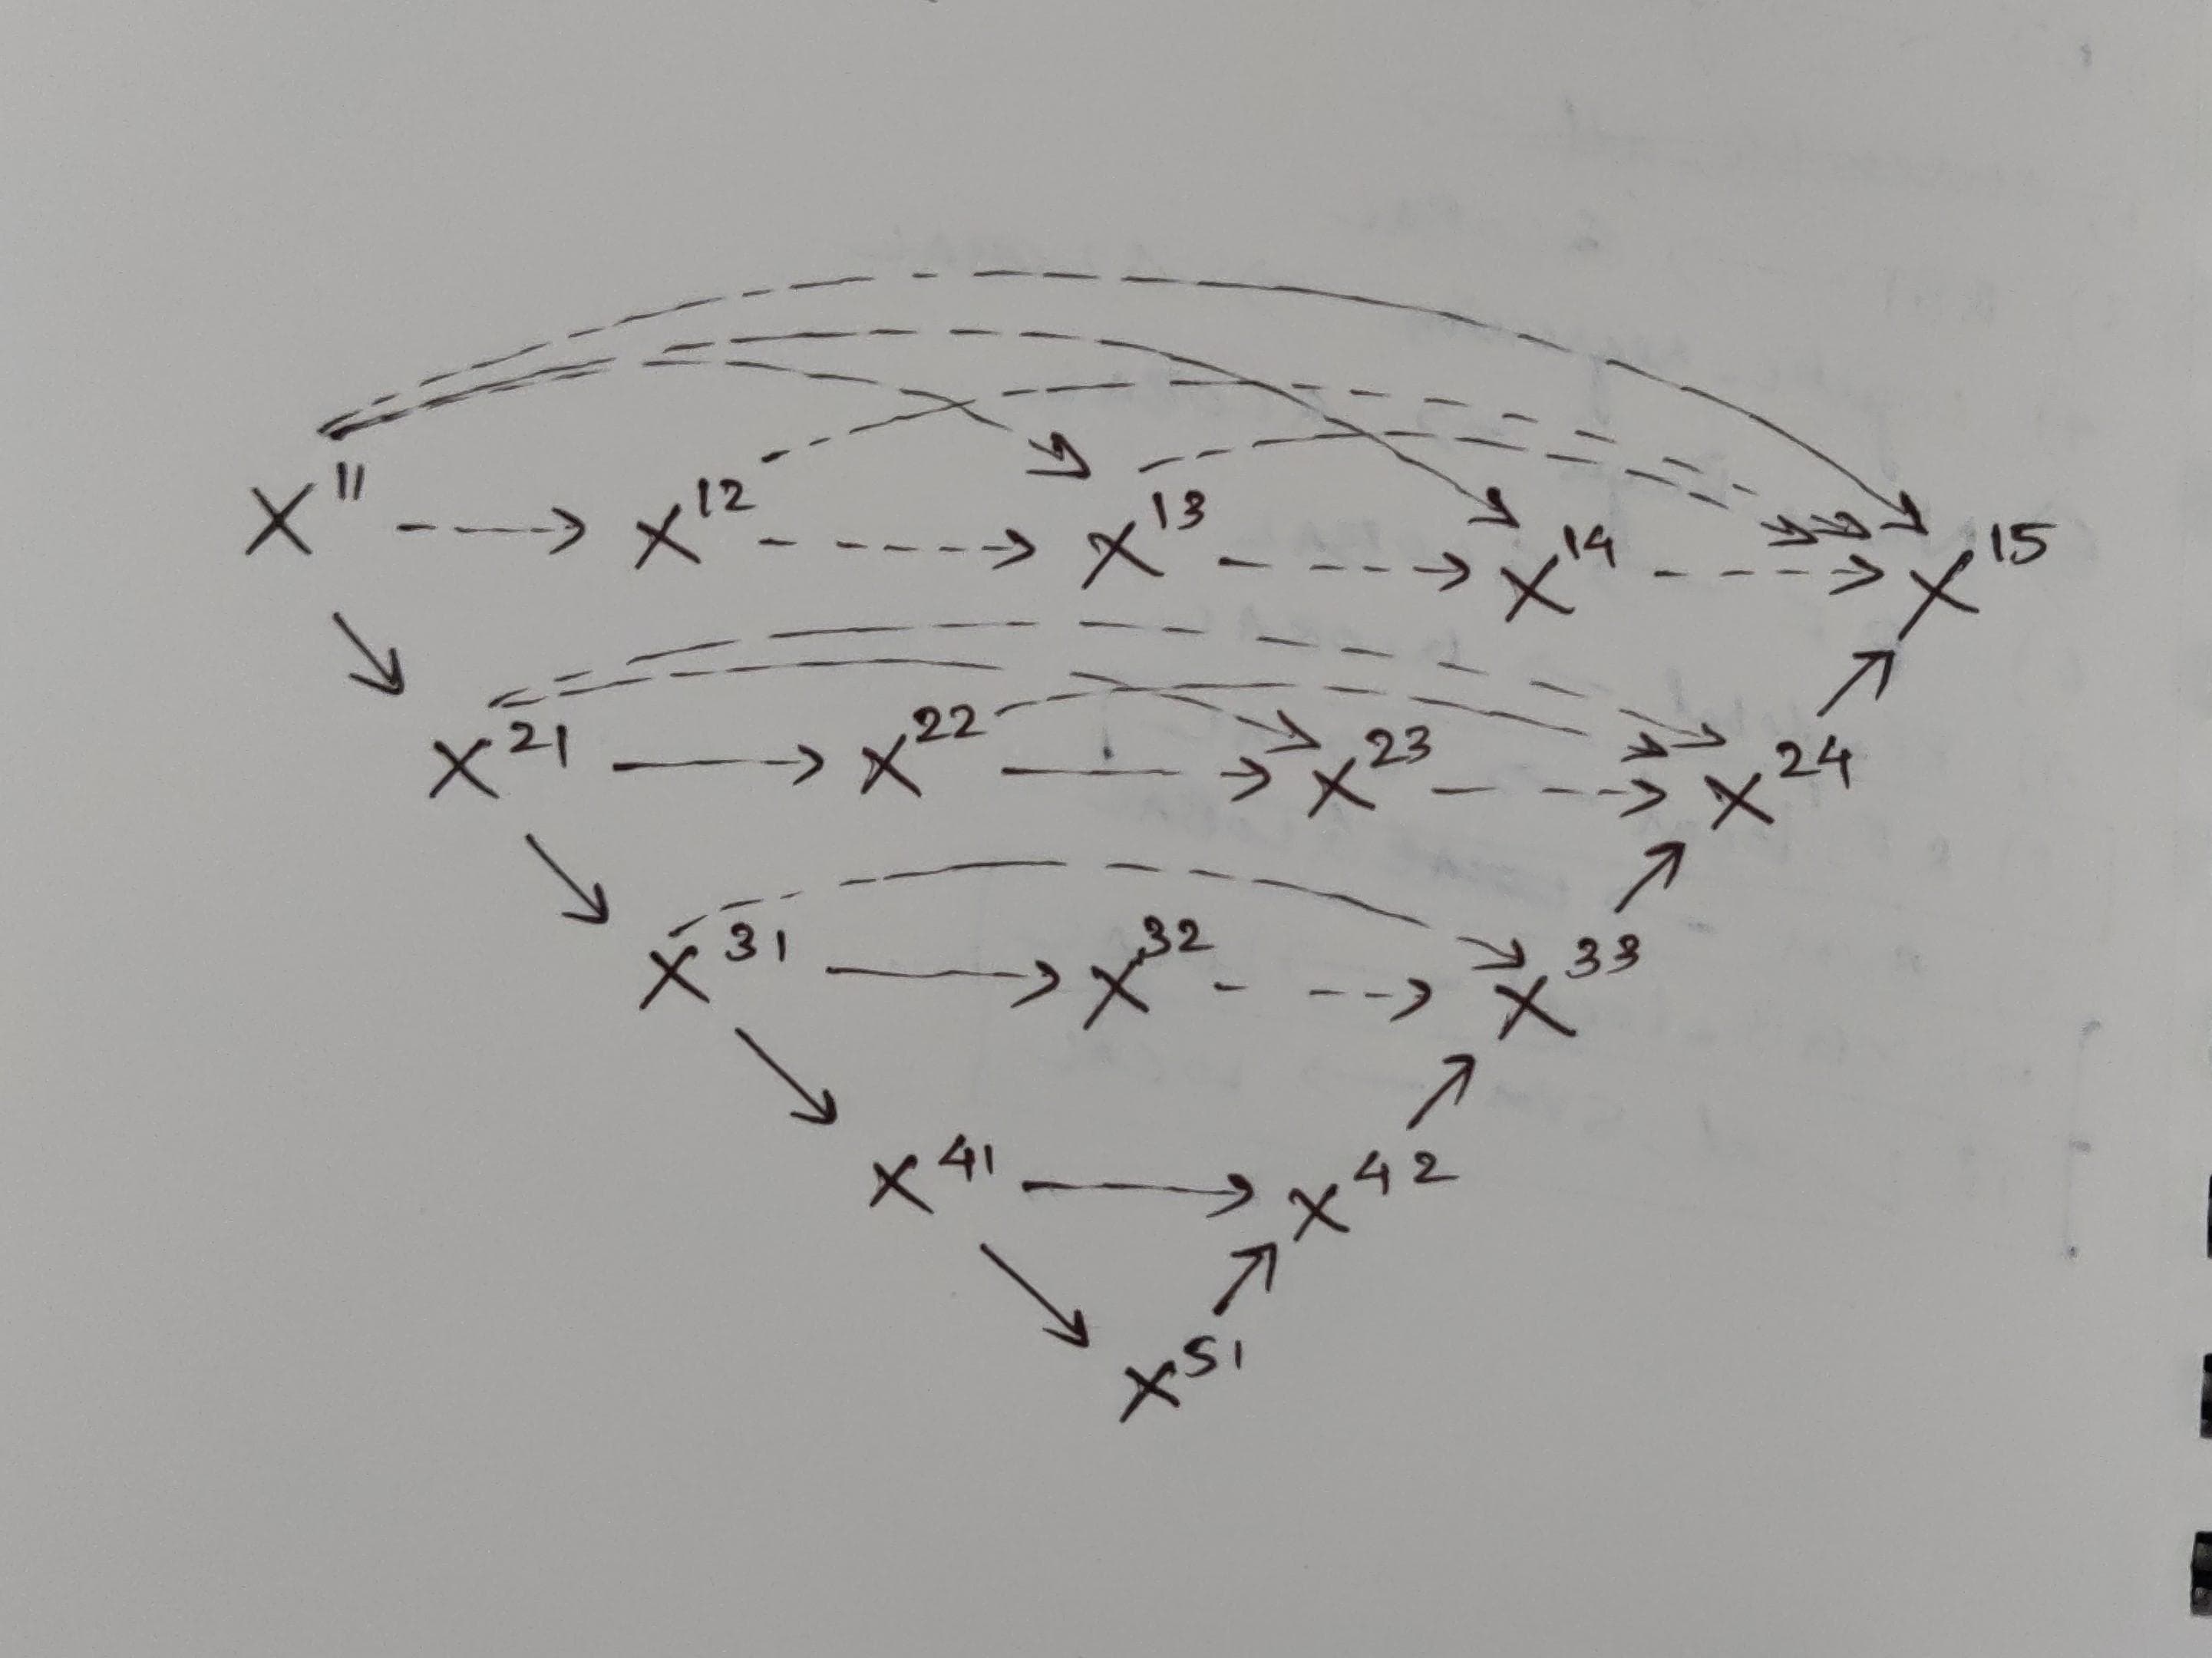 X¹¹ X¹² X¹³ X¹⁴ X¹⁵
X²¹ X²² X²³ X²⁴
X³¹ X³² X³³
X⁴¹ X⁴²
X⁵¹